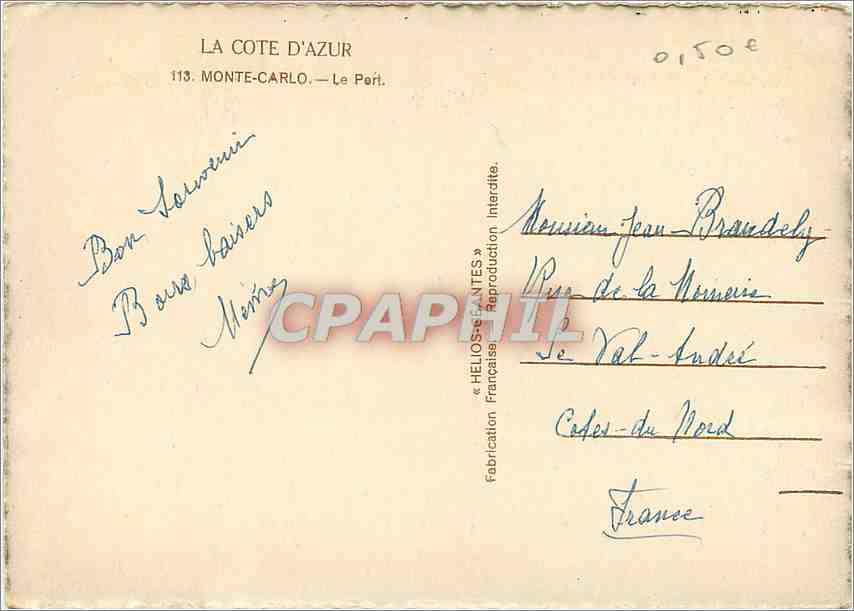 LA COTE D'AZUR
113. MONTE-CARLO. — Le Port.
0,50€
Bon Souvenir
Bons baisers
CPAPHIL
« HELIOS-GÉANTES »
Fabrication Française Reproduction Interdite.
Monsieur Jean Brandely
Rue de la
Le Val-André
Cotes-du Nord
France